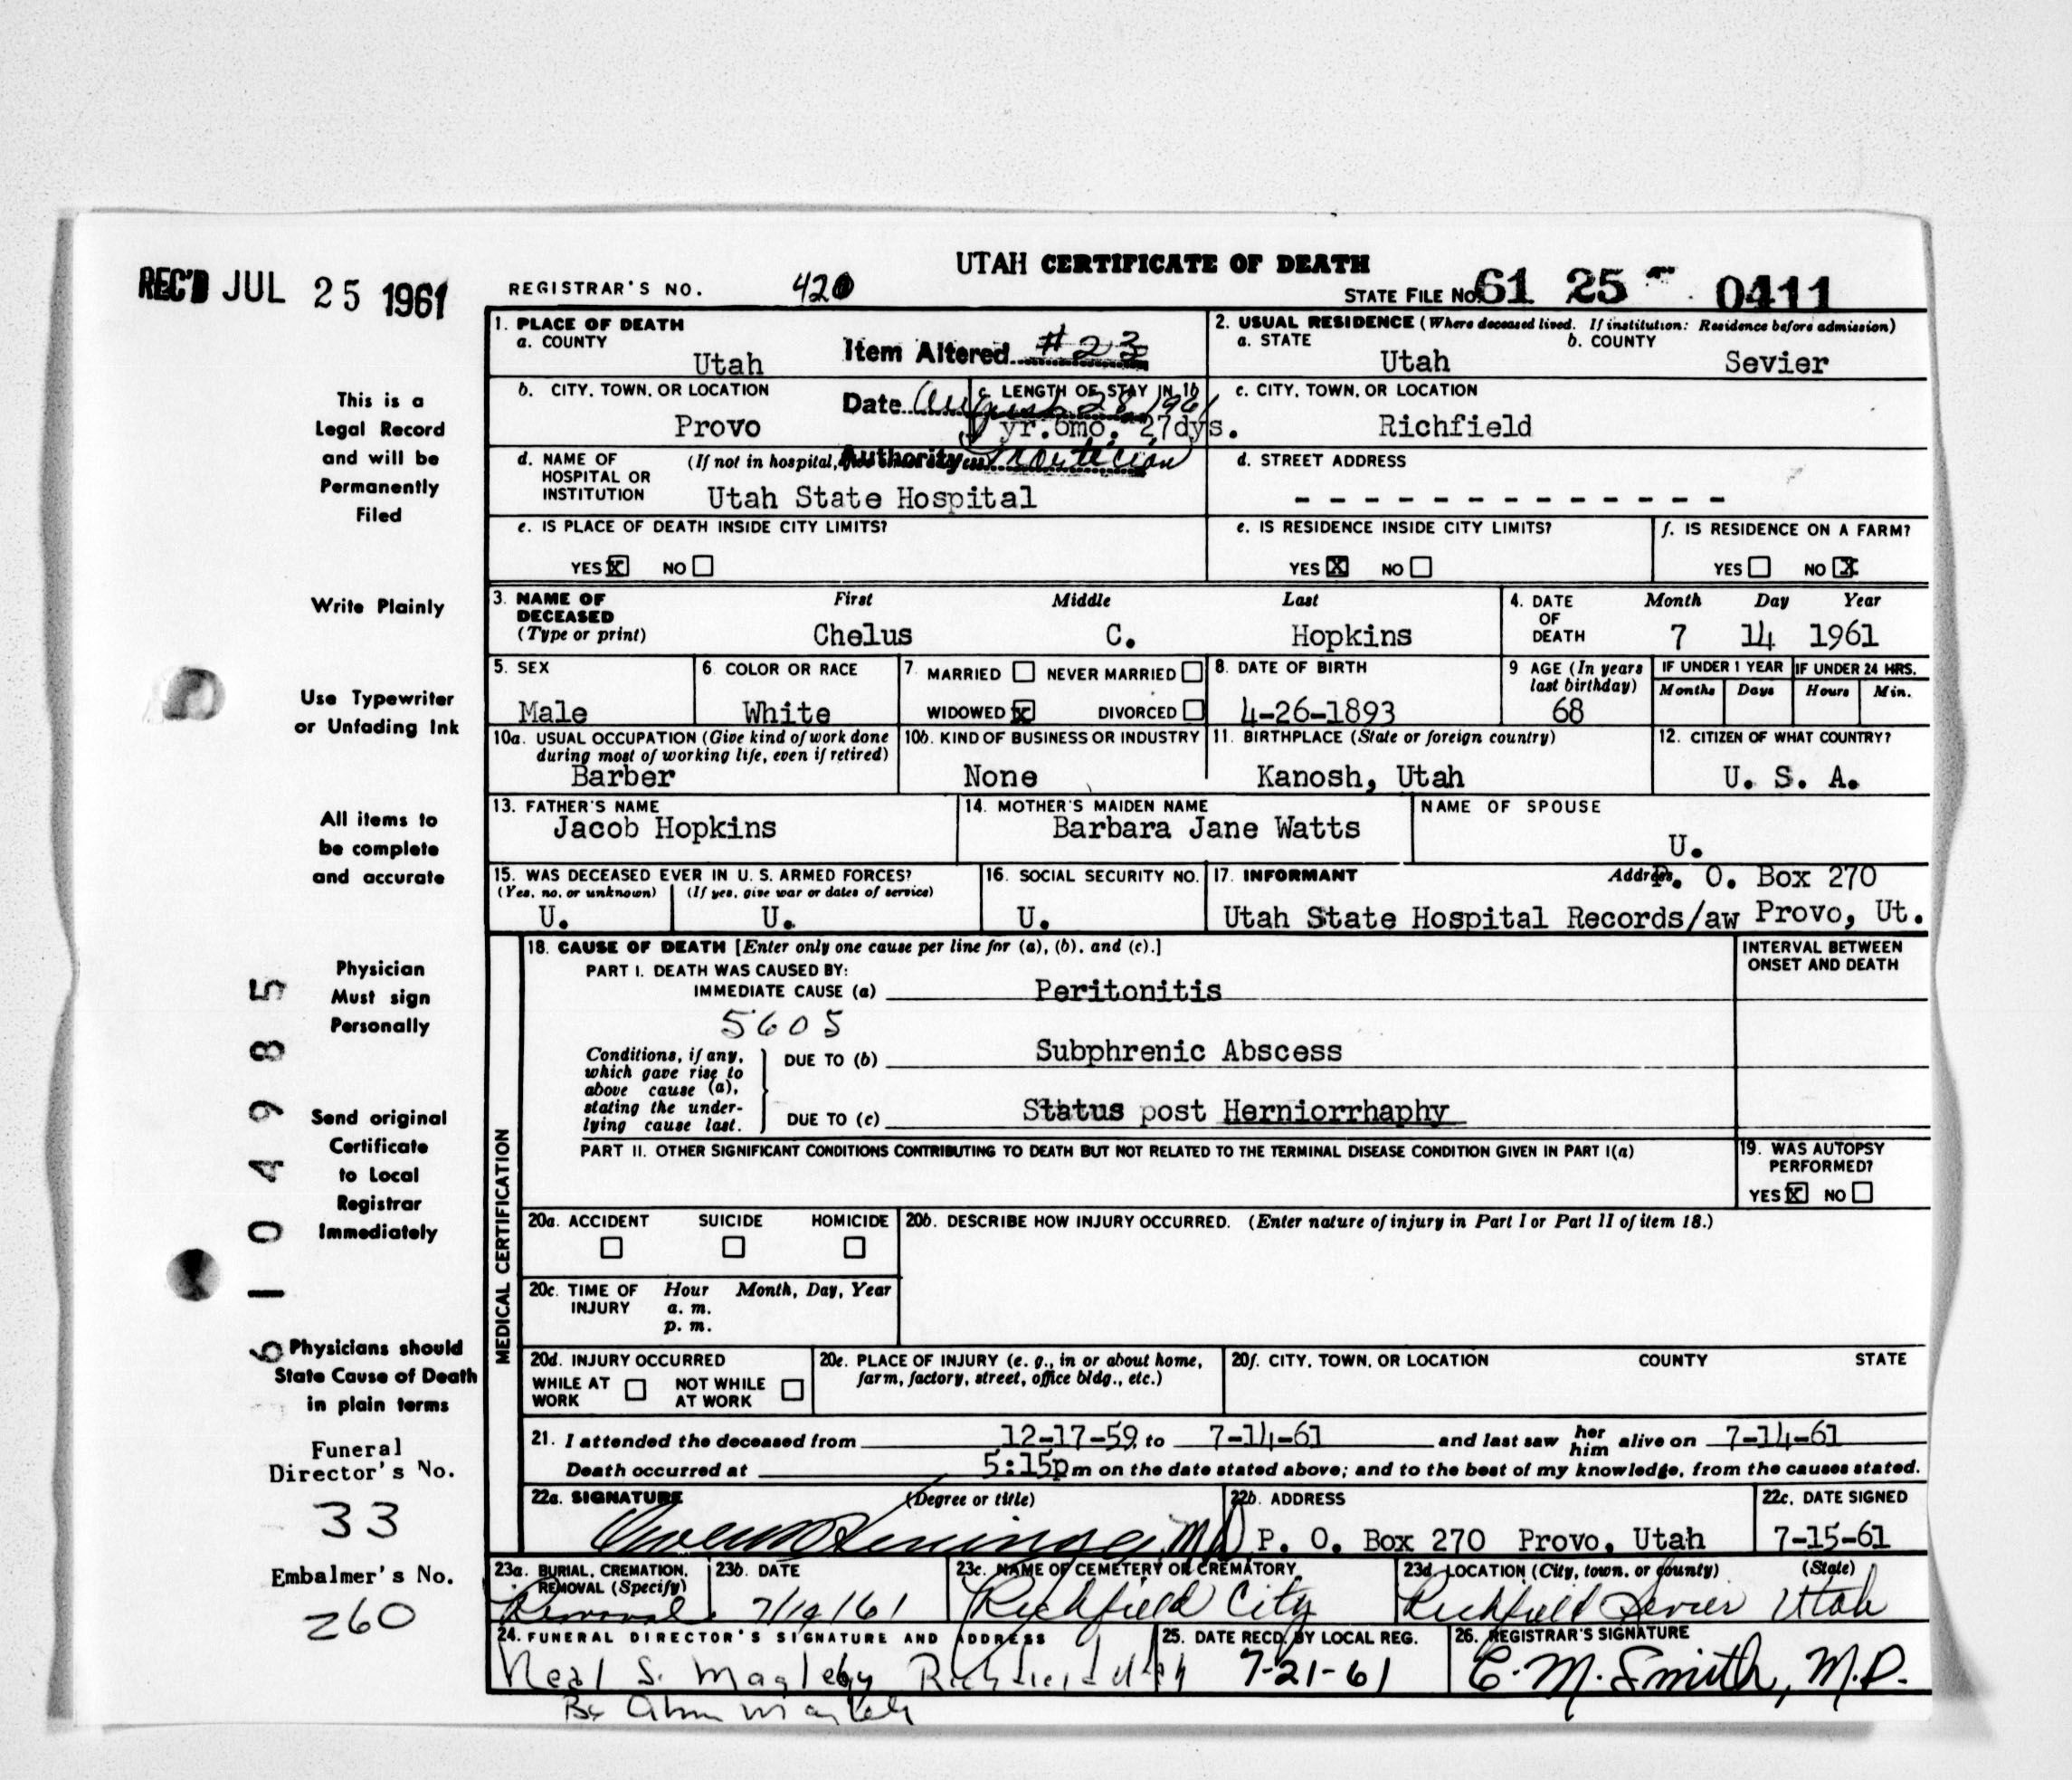 REC'D JUL 25 1961
UTAH CERTIFICATE OF DEATH
REGISTRAR'S NO. 420
STATE FILE NO. 61 25 0411
1. PLACE OF DEATH
a. COUNTY
Utah
Item Altered #23
2. USUAL RESIDENCE (Where deceased lived. If institution: Residence before admission)
a. STATE
Utah
b. COUNTY
Sevier
b. CITY, TOWN, OR LOCATION
Provo
Date August 28 1961
c. LENGTH OF STAY IN 1b
1 yr. 6mo. 27dys.
c. CITY, TOWN, OR LOCATION
Richfield
d. NAME OF HOSPITAL OR INSTITUTION
(If not in hospital,
Authority Mortician
Utah State Hospital
d. STREET ADDRESS
- - - - - - - - - - - - -
e. IS PLACE OF DEATH INSIDE CITY LIMITS?
YES X NO
e. IS RESIDENCE INSIDE CITY LIMITS?
YES X NO
f. IS RESIDENCE ON A FARM?
YES NO X
3. NAME OF DECEASED (Type or print)
First Middle Last
Chelus C. Hopkins
4. DATE OF DEATH
Month Day Year
7 14 1961
5. SEX
Male
6. COLOR OR RACE
White
7. MARRIED NEVER MARRIED
WIDOWED X DIVORCED
8. DATE OF BIRTH
4-26-1893
9 AGE (In years last birthday)
68
IF UNDER 1 YEAR
Months Days
IF UNDER 24 HRS.
Hours Min.
10a. USUAL OCCUPATION (Give kind of work done during most of working life, even if retired)
Barber
10b. KIND OF BUSINESS OR INDUSTRY
None
11. BIRTHPLACE (State or foreign country)
Kanosh, Utah
12. CITIZEN OF WHAT COUNTRY?
U. S. A.
13. FATHER'S NAME
Jacob Hopkins
14. MOTHER'S MAIDEN NAME
Barbara Jane Watts
NAME OF SPOUSE
U.
15. WAS DECEASED EVER IN U. S. ARMED FORCES?
(Yes, no, or unknown) (If yes, give war or dates of service)
U. U.
16. SOCIAL SECURITY NO.
U.
17. INFORMANT Address
P. O. Box 270
Utah State Hospital Records/aw Provo, Ut.
MEDICAL CERTIFICATION
18. CAUSE OF DEATH [Enter only one cause per line for (a), (b), and (c).]
INTERVAL BETWEEN ONSET AND DEATH
PART I. DEATH WAS CAUSED BY:
IMMEDIATE CAUSE (a) Peritonitis
5605
Conditions, if any, which gave rise to above cause (a), stating the underlying cause last.
DUE TO (b) Subphrenic Abscess
DUE TO (c) Status post Herniorrhaphy
PART II. OTHER SIGNIFICANT CONDITIONS CONTRIBUTING TO DEATH BUT NOT RELATED TO THE TERMINAL DISEASE CONDITION GIVEN IN PART I(a)
19. WAS AUTOPSY PERFORMED?
YES X NO
20a. ACCIDENT SUICIDE HOMICIDE
20b. DESCRIBE HOW INJURY OCCURRED. (Enter nature of injury in Part I or Part II of item 18.)
20c. TIME OF INJURY
Hour Month, Day, Year
a. m.
p. m.
20d. INJURY OCCURRED
WHILE AT WORK NOT WHILE AT WORK
20e. PLACE OF INJURY (e. g., in or about home, farm, factory, street, office bldg., etc.)
20f. CITY, TOWN, OR LOCATION COUNTY STATE
21. I attended the deceased from 12-17-59 to 7-14-61 and last saw her him alive on 7-14-61
Death occurred at 5:15p m on the date stated above; and to the best of my knowledge, from the causes stated.
22a. SIGNATURE (Degree or title)
M D
22b. ADDRESS
P. O. Box 270 Provo, Utah
22c. DATE SIGNED
7-15-61
23a. BURIAL, CREMATION, REMOVAL (Specify)
Removal
23b. DATE
23c. NAME OF CEMETERY OR CREMATORY
Richfield City
23d. LOCATION (City, town, or county) (State)
Richfield Sevier Utah
24. FUNERAL DIRECTOR'S SIGNATURE AND ADDRESS
Neal S. Magleby Richfield Utah
25. DATE RECD. BY LOCAL REG.
7-21-61
26. REGISTRAR'S SIGNATURE
E. M. Smith, M.D.
This is a
Legal Record
and will be
Permanently
Filed
Write Plainly
Use Typewriter
or Unfading Ink
All items to
be complete
and accurate
Physician
Must sign
Personally
Send original
Certificate
to Local
Registrar
Immediately
6 104985
Physicians should
State Cause of Death
in plain terms
Funeral
Director's No.
33
Embalmer's No.
260